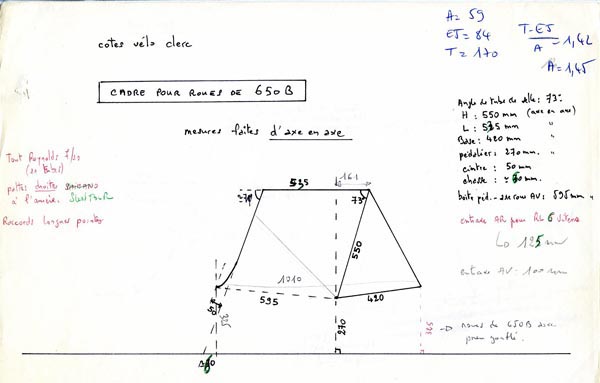 cotes vélo clerc
A = 59
EJ = 84
T = 170
T-EJ
A
= 1,42
A = 1,45
CADRE POUR ROUES DE 650B
mesures faites d'axe en axe
Angle de tube de selle : 73°
H : 550 mm (axe en axe)
L : 535 mm "
Base : 420 mm "
pédalier : 270 mm "
cintre : 50 mm
chasse : 
boîte péd. - axe roue AV : 595 mm "
entraxe AR pour RL 6 vitesses
125 mm
entraxe AV : 100 mm
Tout Reynolds
pattes droites
à l'arrière. SUNTOUR
Raccords longues pointes
535
161
73°
550
1010
595
420
270
325
325
→ roues de 650B axe
pneu gonflé.